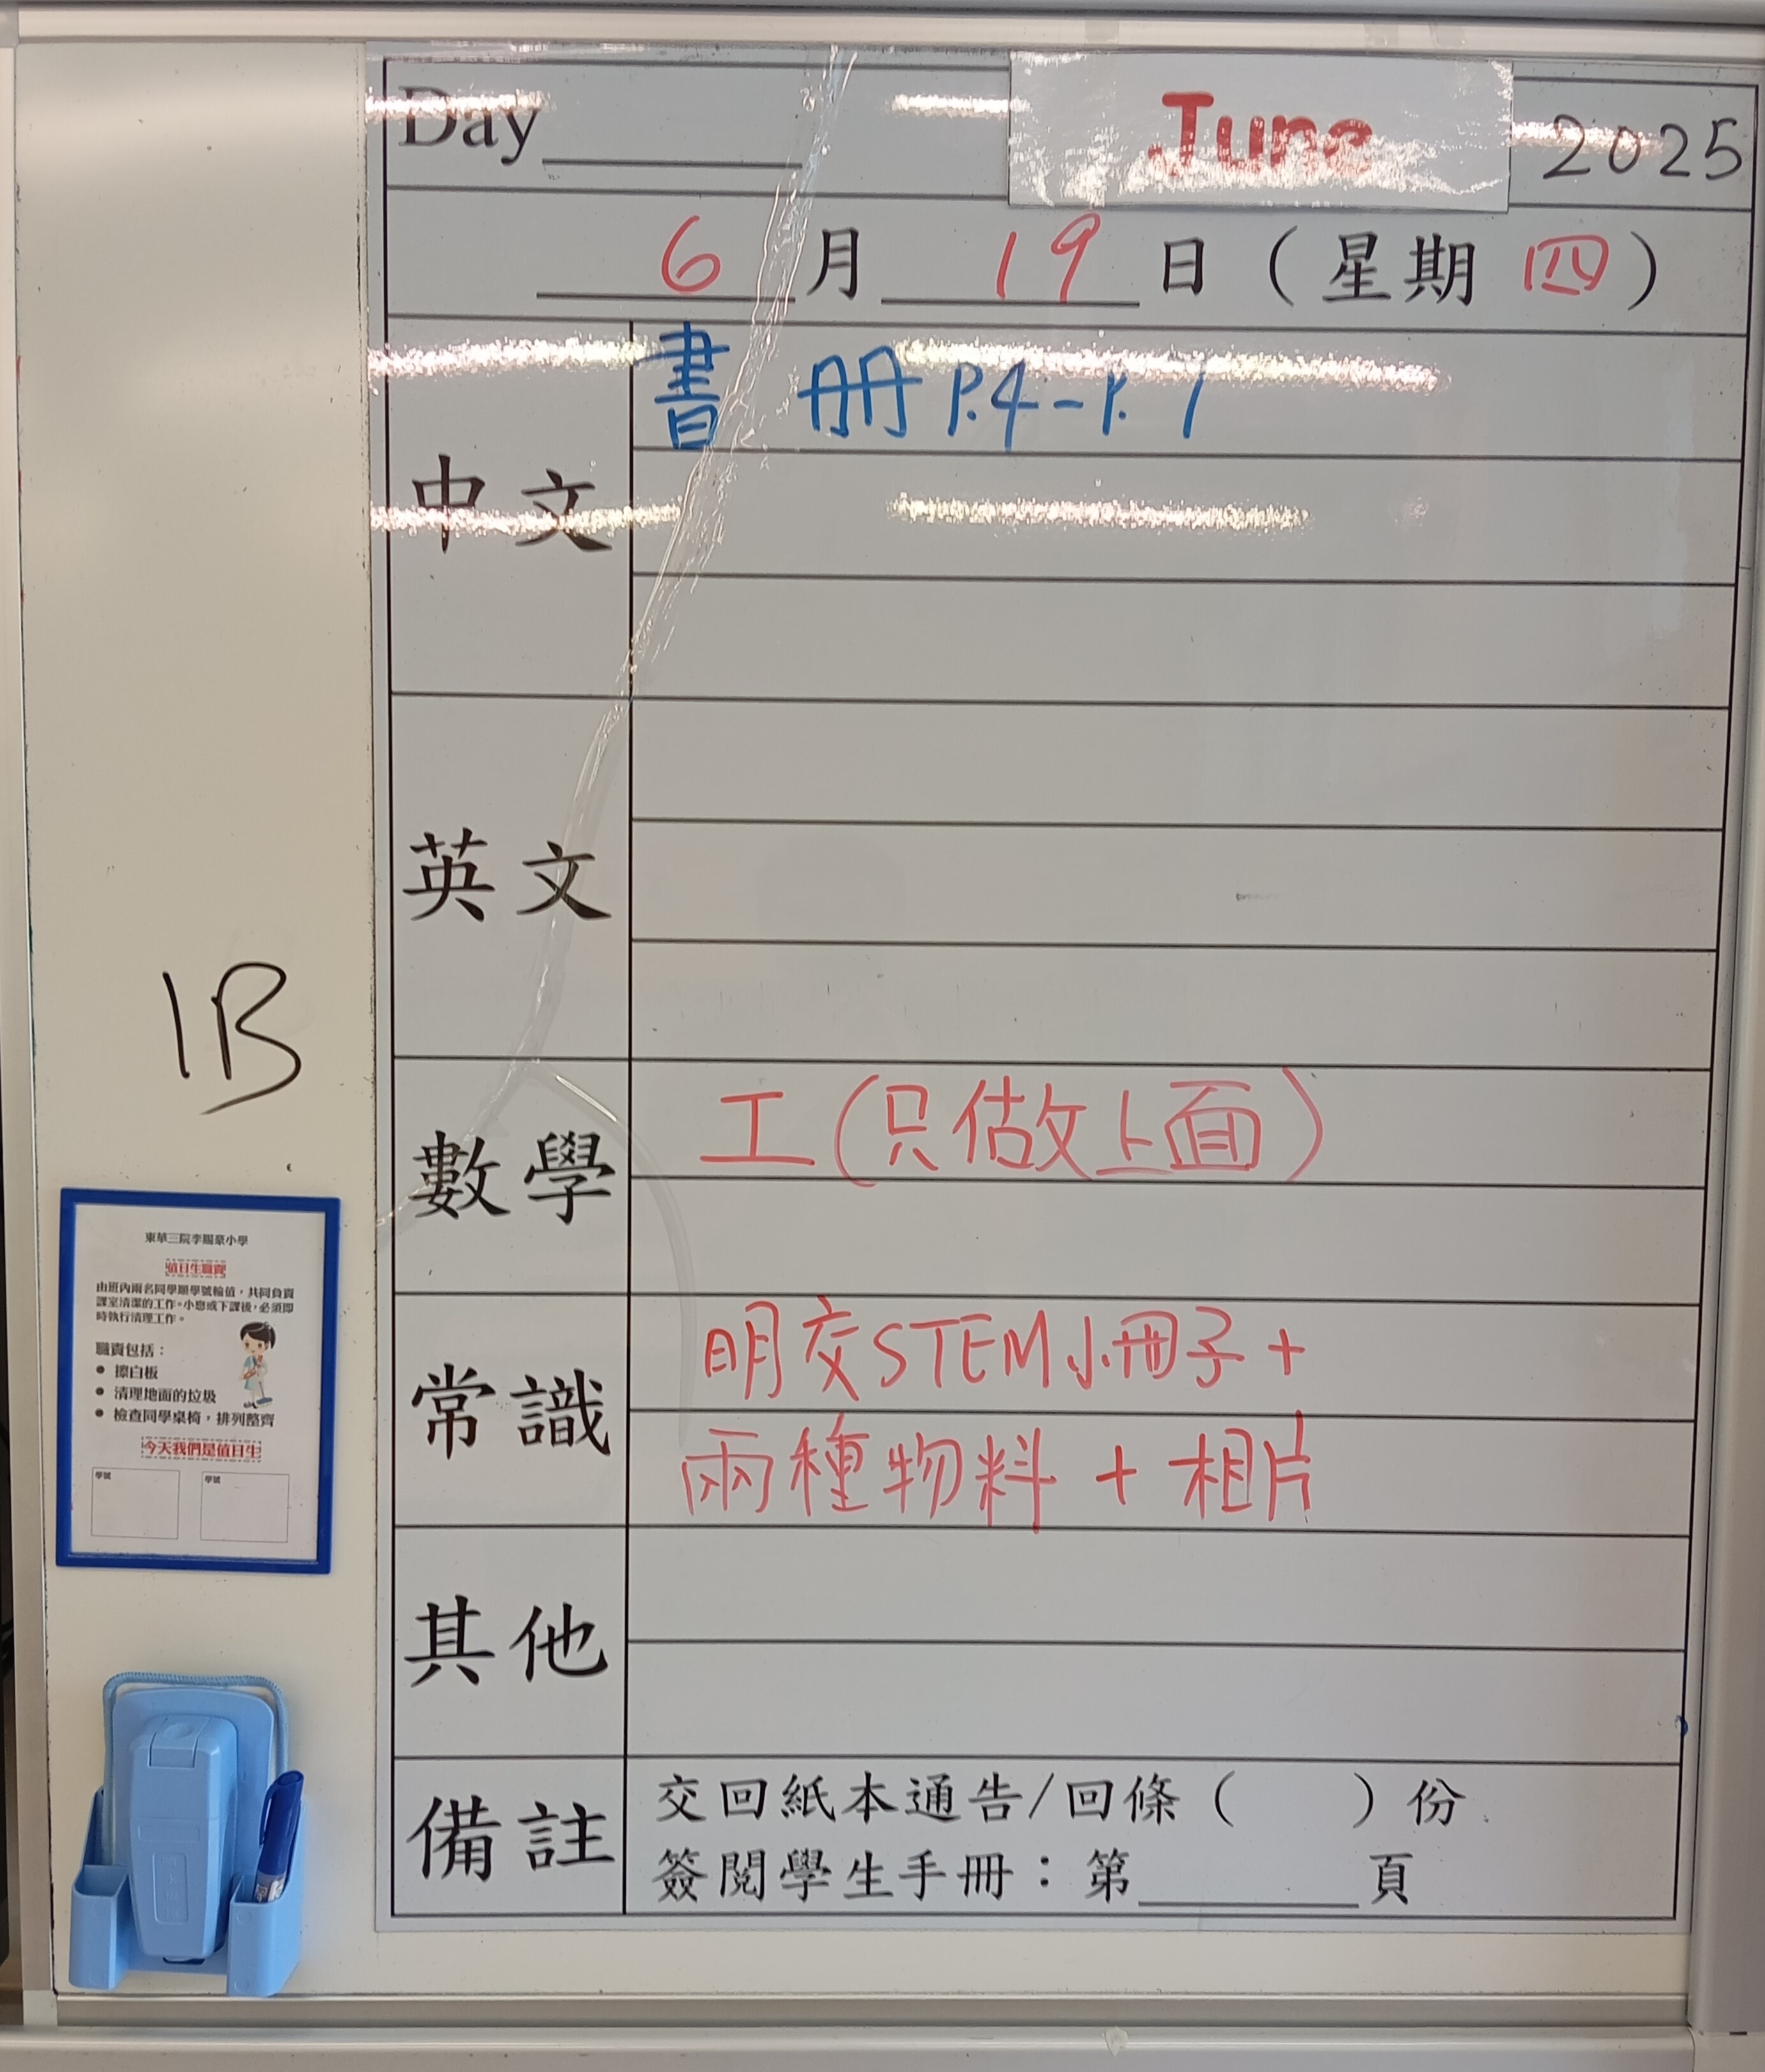 Day
June
2025
6月19日(星期四)
中文
書 冊 P.4-P.
英文
數學
工(只做上面)
常識
明交STEM小冊子+
兩種物料+相片
其他
備註
交回紙本通告/回條( )份
簽閱學生手冊：第 頁
1B
東華三院李賜豪小學
值日生職責
由班內兩名同學順學號輪值，共同負責
課室清潔的工作。小息或下課後，必須即
時執行清理工作。
職責包括：
• 擦白板
• 清理地面的垃圾
• 檢查同學桌椅，排列整齊
今天我們是值日生
學號
學號